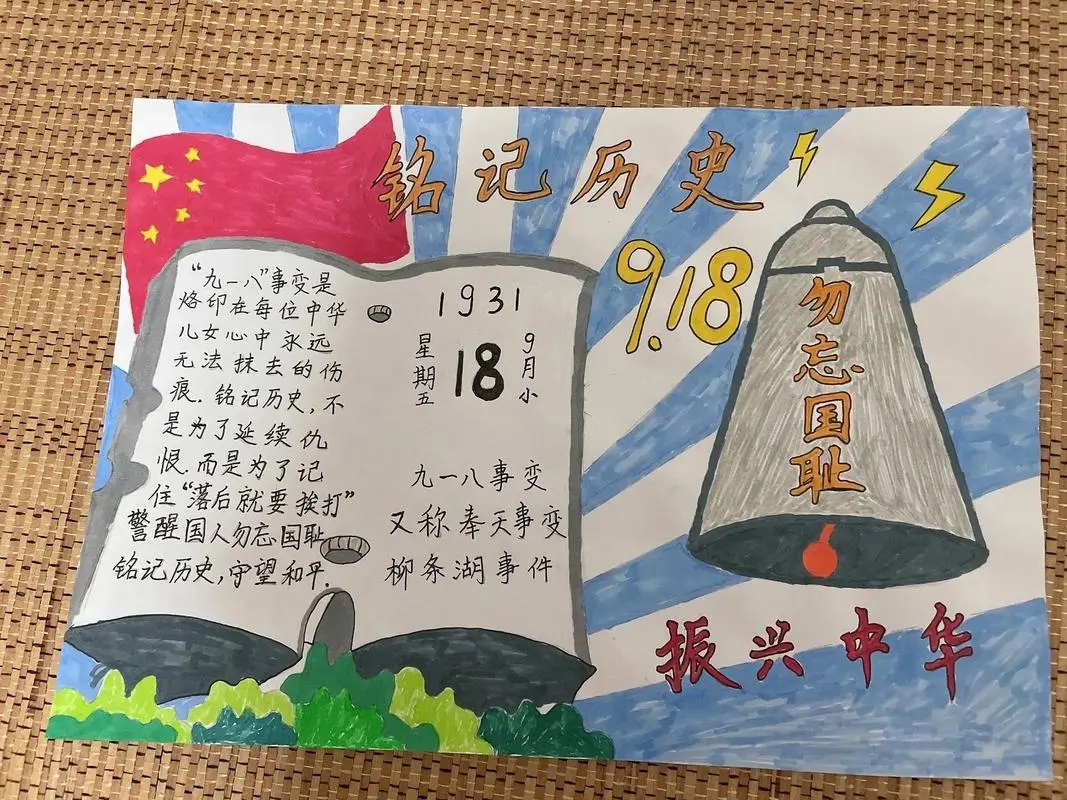 铭记历史
9.18
勿忘国耻
"九一八"事变是
烙印在每位中华
儿女心中永远
无法抹去的伤
痕.铭记历史,不
是为了延续仇
恨.而是为了记
住"落后就要挨打"
警醒国人勿忘国耻
铭记历史,守望和平.
1931
星期五
18
9月小
九一八事变
又称奉天事变
柳条湖事件
振兴中华